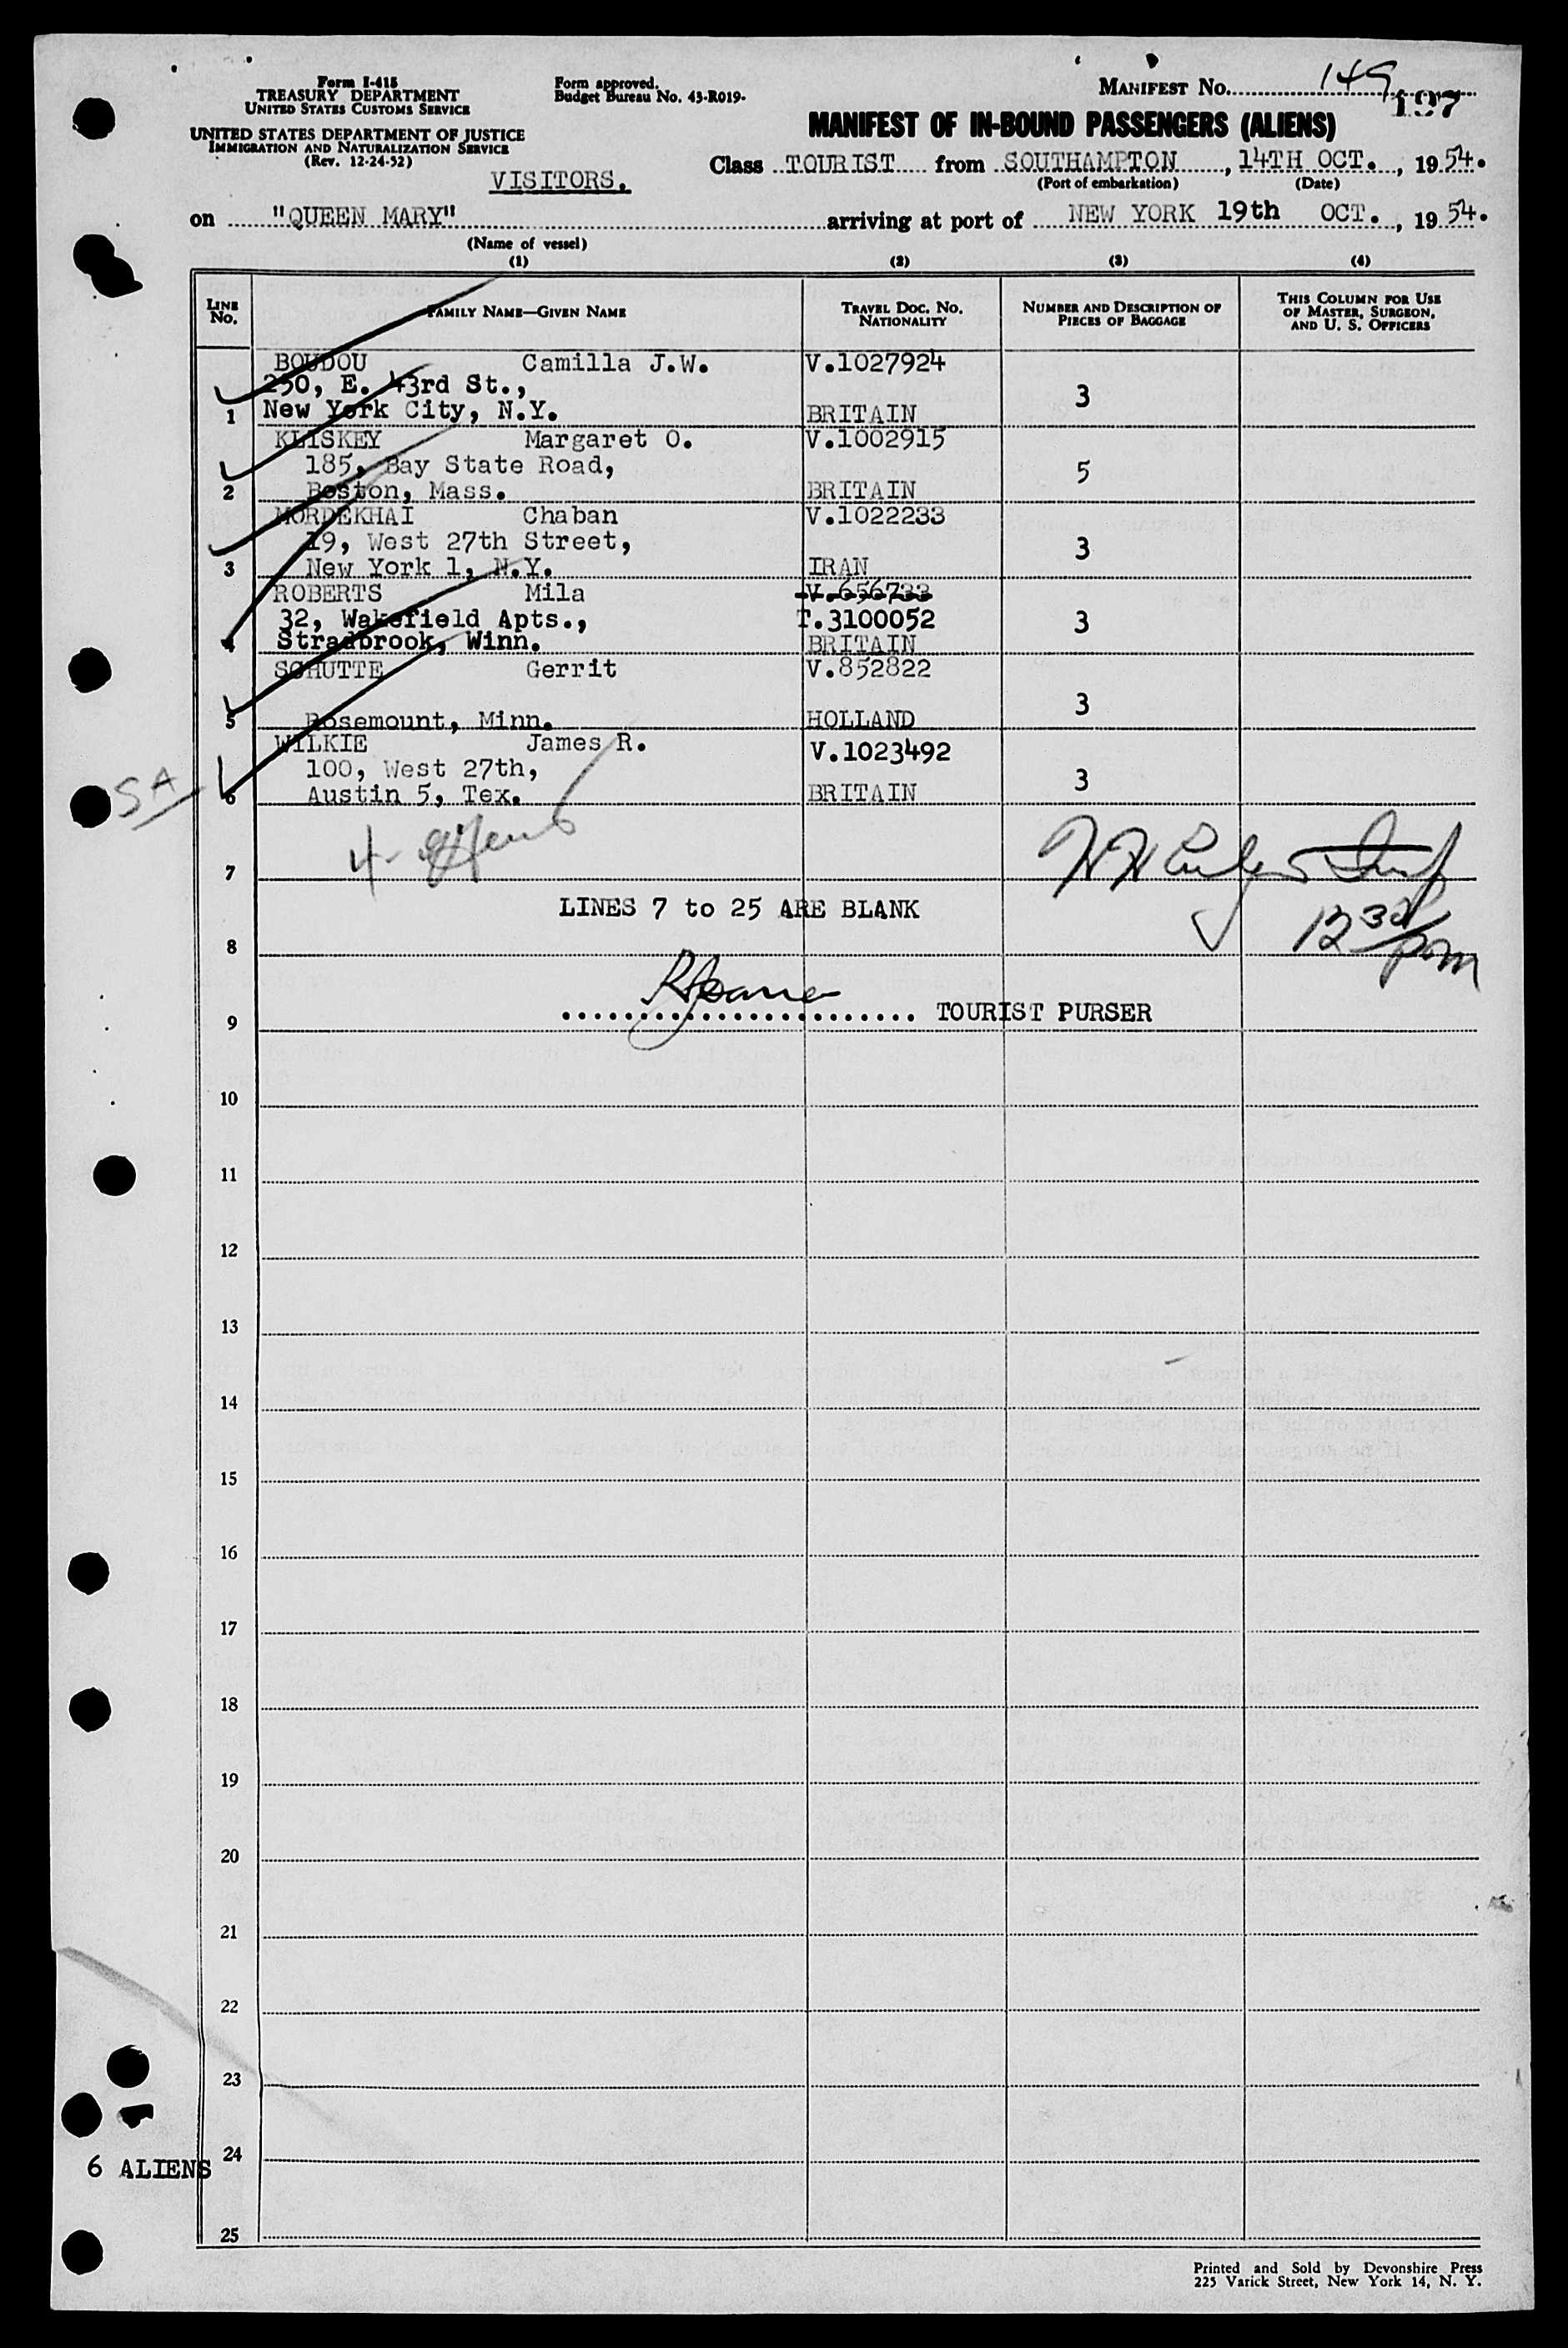 Form I-415
TREASURY DEPARTMENT
UNITED STATES CUSTOMS SERVICE
UNITED STATES DEPARTMENT OF JUSTICE
IMMIGRATION AND NATURALIZATION SERVICE
(Rev. 12-24-52)
Form approved.
Budget Bureau No. 43-R019.
VISITORS.
MANIFEST No. 149
197
MANIFEST OF IN-BOUND PASSENGERS (ALIENS)
Class TOURIST from SOUTHAMPTON, 14TH OCT., 1954.
(Port of embarkation) (Date)
on "QUEEN MARY" arriving at port of NEW YORK 19th OCT., 1954.
(Name of vessel)
(1) (2) (3) (4)
LINE No. FAMILY NAME—GIVEN NAME TRAVEL DOC. NO. NATIONALITY NUMBER AND DESCRIPTION OF PIECES OF BAGGAGE THIS COLUMN FOR USE OF MASTER, SURGEON, AND U. S. OFFICERS
BOUDOU Camilla J.W. V.1027924
250, E. 43rd St., 3
1 New York City, N.Y. BRITAIN
KLISKEY Margaret O. V.1002915
185, Bay State Road, 5
2 Boston, Mass. BRITAIN
MORDEKHAI Chaban V.1022233
19, West 27th Street, 3
3 New York 1, N.Y. IRAN
ROBERTS Mila V.656733
32, Wakefield Apts., T.3100052 3
4 Stradbrook, Winn. BRITAIN
SCHUTTE Gerrit V.852822
3
5 Rosemount, Minn. HOLLAND
WILKIE James R. V.1023492
100, West 27th, 3
SA 6 Austin 5, Tex. BRITAIN
4-
7
LINES 7 to 25 ARE BLANK
12 30/pm
8
TOURIST PURSER
9
10
11
12
13
14
15
16
17
18
19
20
21
22
23
24
6 ALIENS
25
Printed and Sold by Devonshire Press
225 Varick Street, New York 14, N. Y.